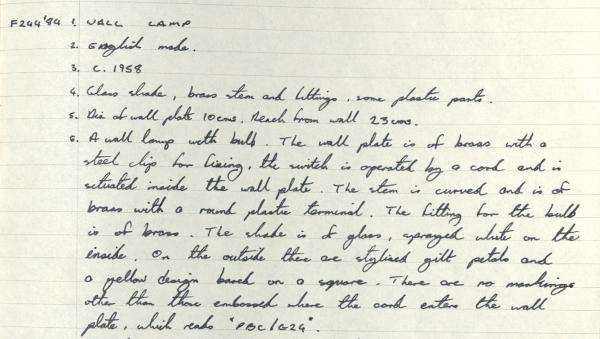 F244'84 1. WALL LAMP
2. English made.
3. C. 1958
4. Glass shade, brass stem and fittings, some plastic parts.
5. Dia of wall plate 10cms. Reach from wall 23cms.
6. A wall lamp with bulb. The wall plate is of brass with a
steel clip for fixing, the switch is operated by a cord and is
situated inside the wall plate. The stem is curved and is of
brass with a round plastic terminal. The fitting for the bulb
is of brass. The shade is of glass, sprayed white on the
inside. On the outside there are stylised gilt petals and
a yellow design based on a square. There are no markings
other than those embossed where the cord enters the wall
plate, which reads "PBC/G24".